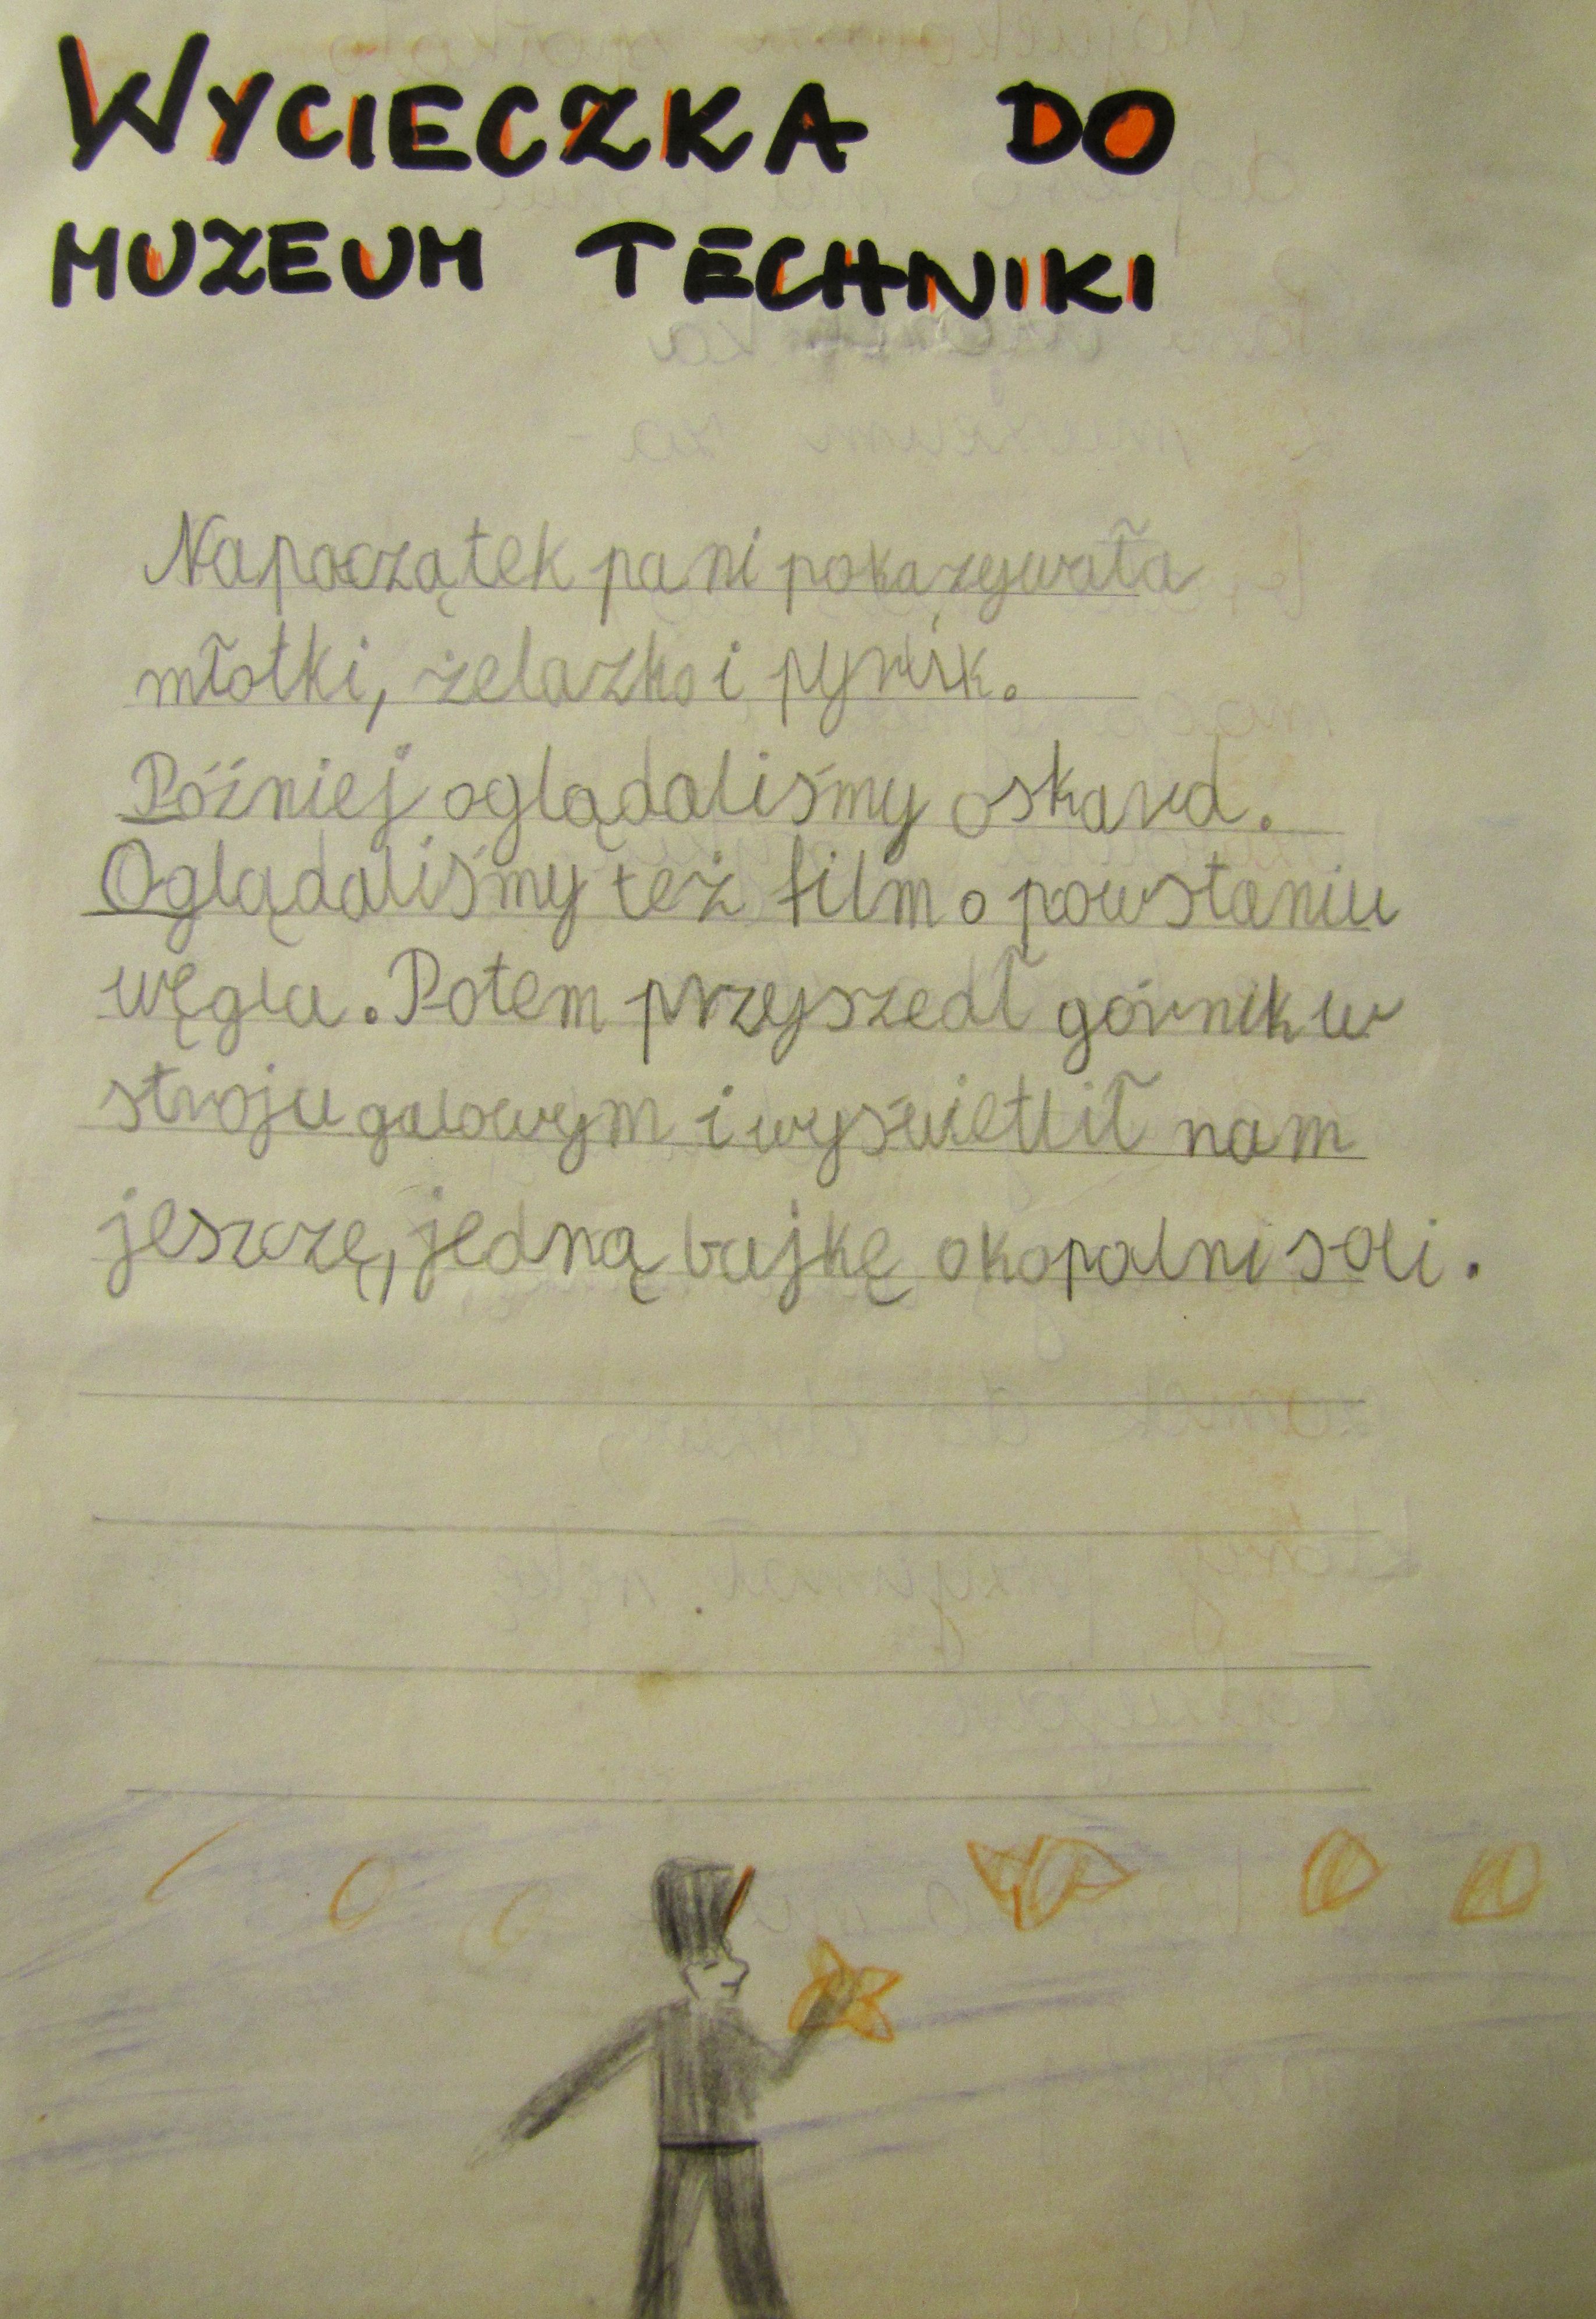 WYCIECZKA DO
MUZEUM TECHNIKI
Na początek pani pokazywała
młotki, żelazko i pyrlik.
Później oglądaliśmy oskard.
Oglądaliśmy też film o powstaniu
węgla. Potem przyszedł górnik w
stroju galowym i wyświetlił nam
jeszczę, jedną bajkę o kopalni soli.